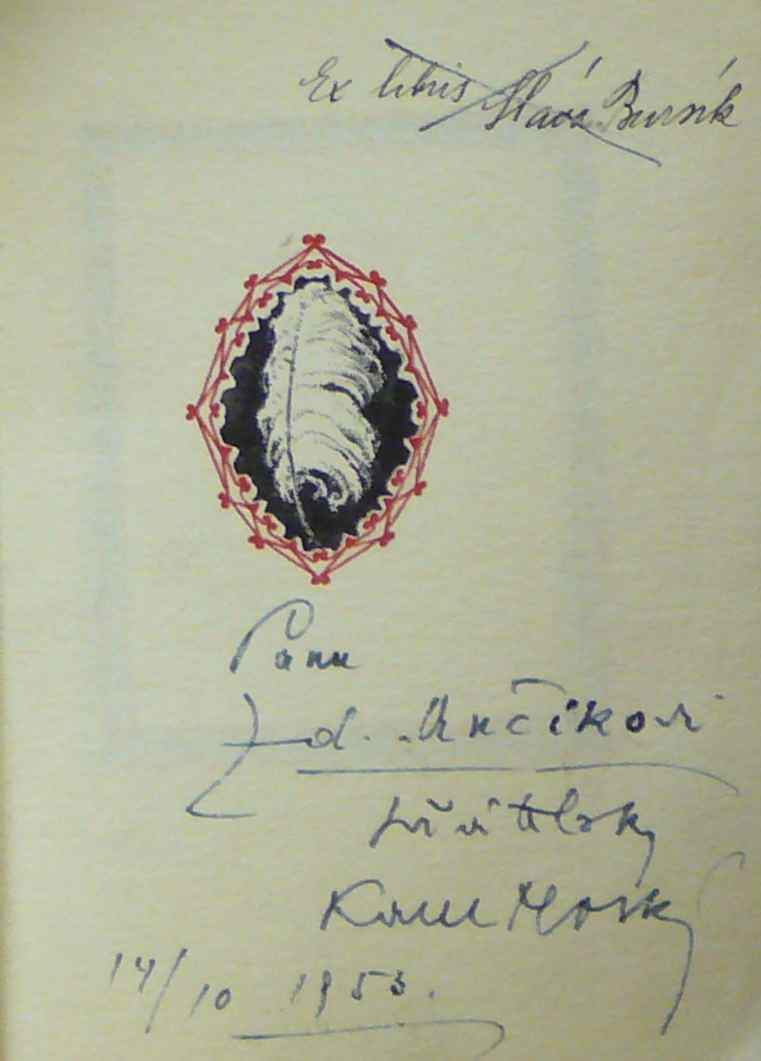 Ex libris Sláva Bursík
Panu
Zd. Ančíkovi
přátelsky
Karel Nový
14/10 1953.